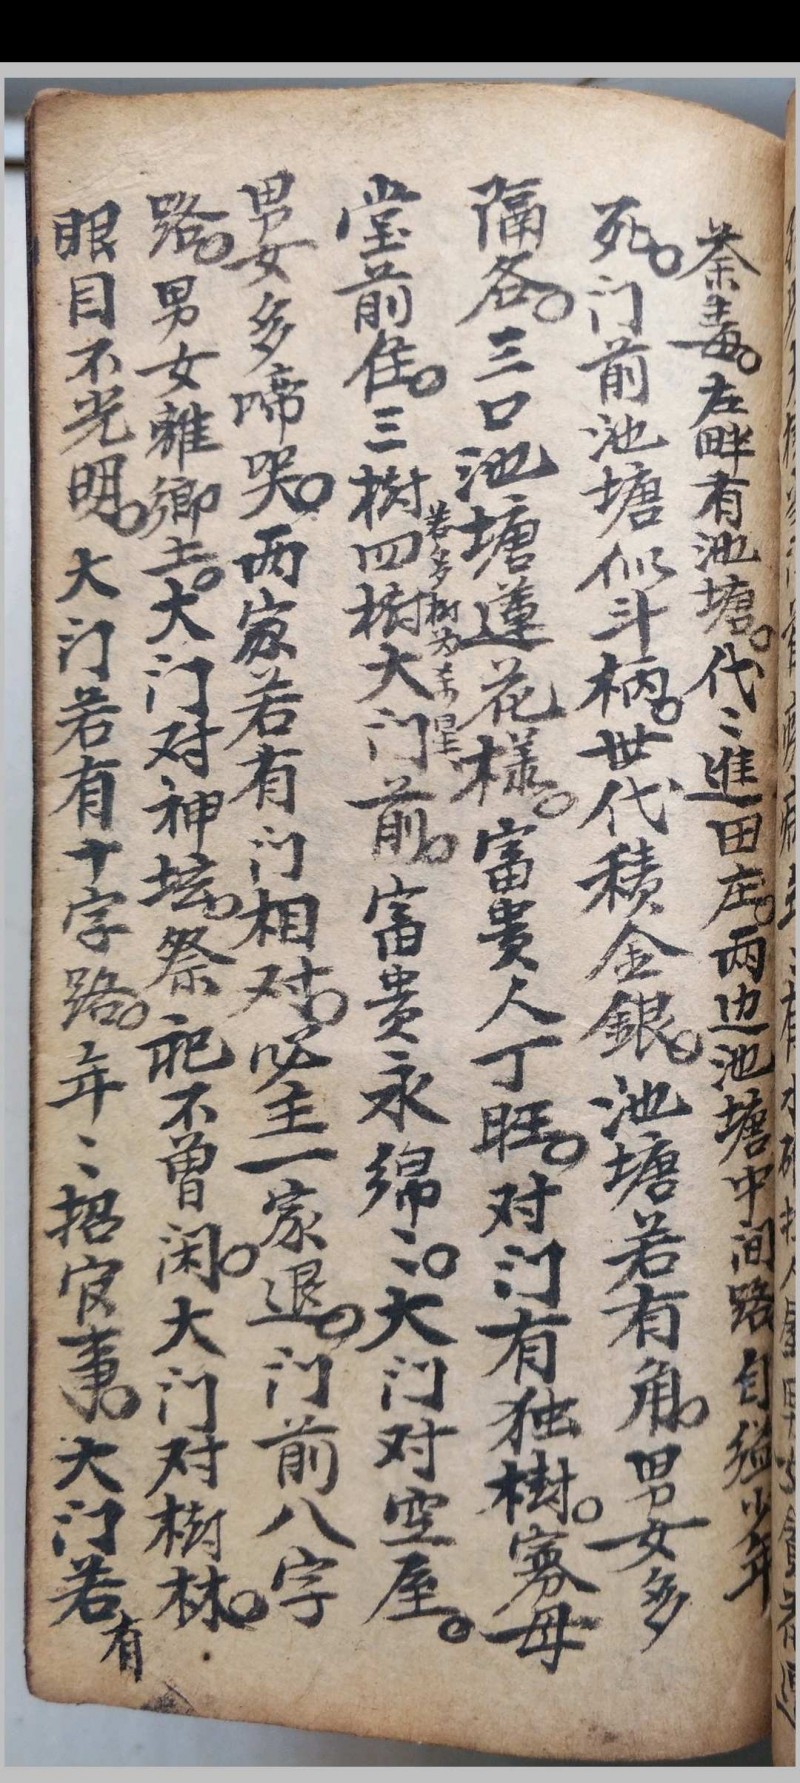 荼毒。左畔有池塘。代〻進田庄。两边池塘中间路。自缢少年
死。门前池塘似斗柄。世代積金銀。池塘若有角。男女多
隔各。三口池塘蓮花樣。富貴人丁旺。对门有独樹。寡母
堂前住。三樹四樹大门前。富貴永綿〻。大门对空屋。
若多樹为 星
男女多啼哭。两家若有门相对。必主一家退。门前八字
路。男女離鄉土。大门对神坛。祭祀不曾闲。大门对樹林。
眼目不光明。大门若有十字路。年〻招官事。大门若有